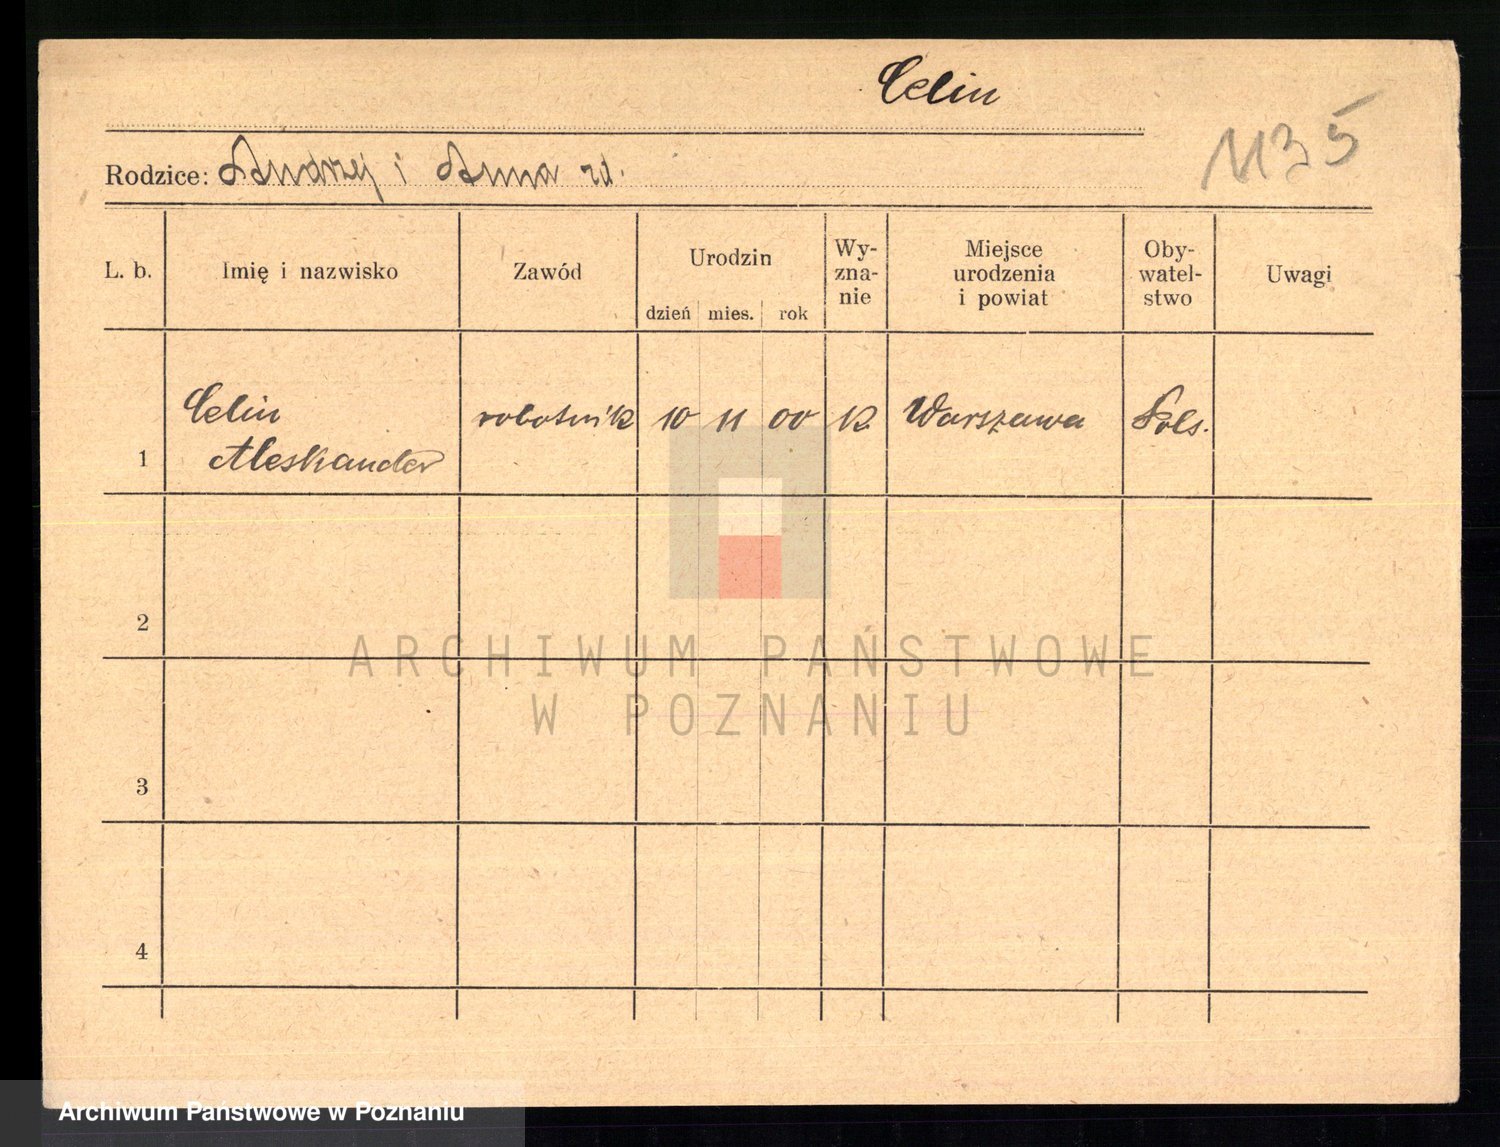 Celin
1135
Rodzice: Andrzej i Anna zd.
L. b. Imię i nazwisko Zawód Urodzin dzień mies. rok Wy-zna-nie Miejsce urodzenia i powiat Oby-watel-stwo Uwagi
1 Celin Aleskander robotnik 10 11 00 K. Warszawa Pols.
2
3
4
ARCHIWUM PAŃSTWOWE
W POZNANIU
Archiwum Państwowe w Poznaniu